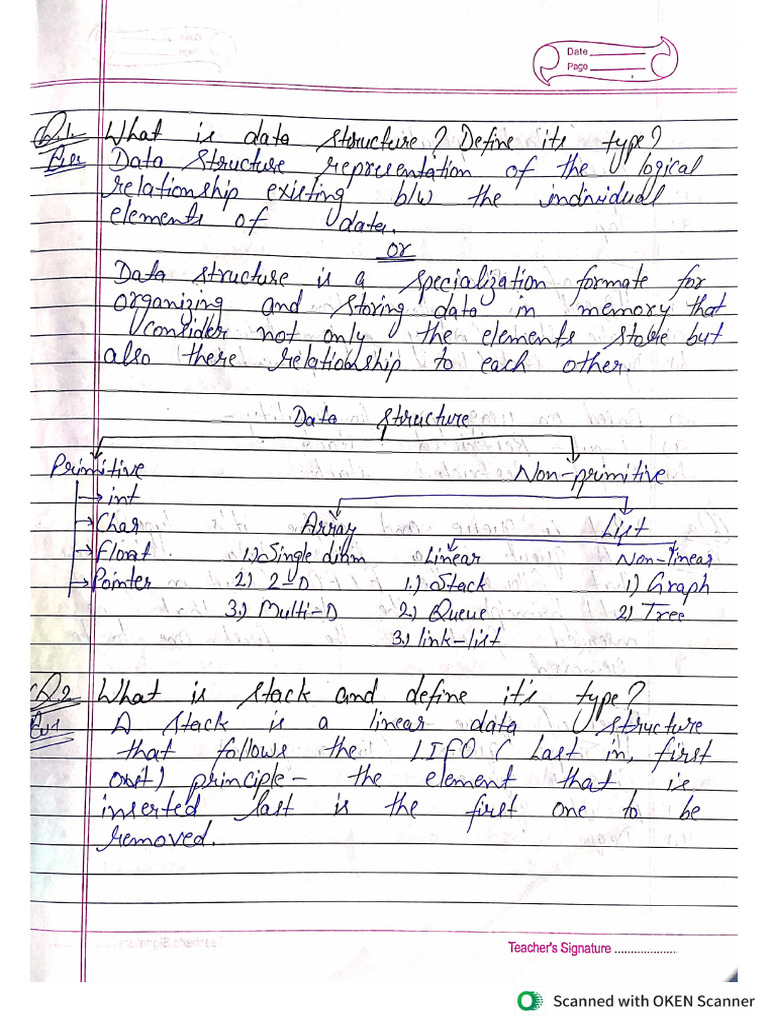 Date
Page
Q.1. What is data structure? Define its type?
Data Structure representation of the logical
relationship existing b/w the individual
elements of data.
or
Data structure is a specialization formate for
organizing and storing data in memory that
consider not only the elements store but
also there relationship to each other.
Data Structure
Primitive Non-primitive
int
Char Array List
Float 1.) Single dinm Linear Non-linear
Pointer 2) 2-D 1.) Stack 1) Graph
3.) Multi-D 2) Queue 2) Tree
3.) link-list
Q.2 What is stack and define it's type?
A stack is a linear data structure
that follows the LIFO ( Last in, first
out) principle- the element that is
inserted last is the first one to be
removed.
Teacher's Signature ....................
Scanned with OKEN Scanner